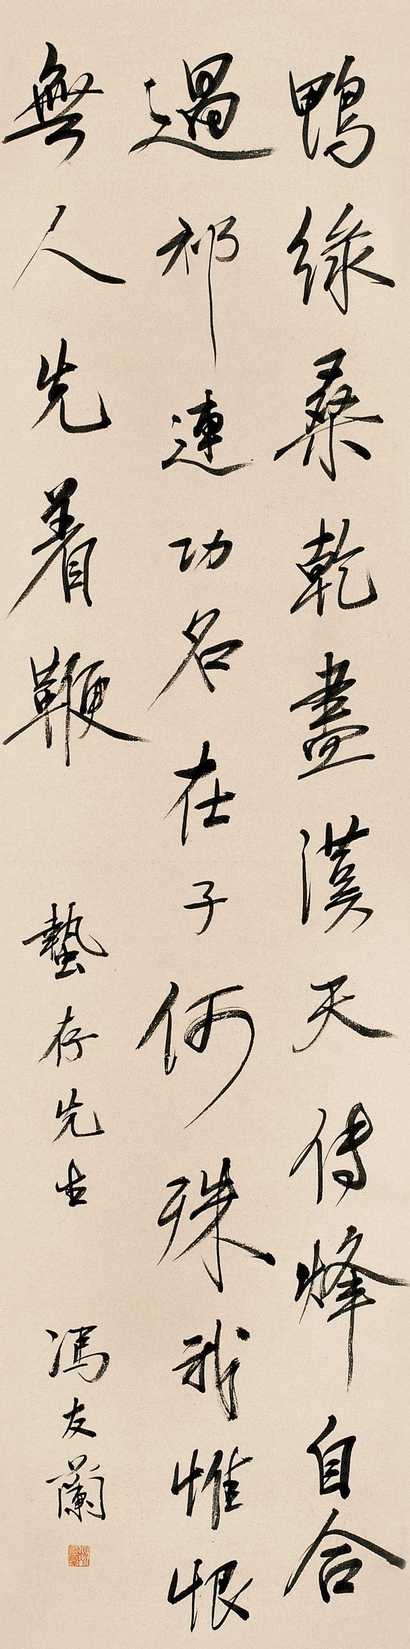 鴨緑桑乾盡漢天传烽自合
過祁連功名在子何殊我惟恨
無人先着鞭
蟄存先生
馮友蘭